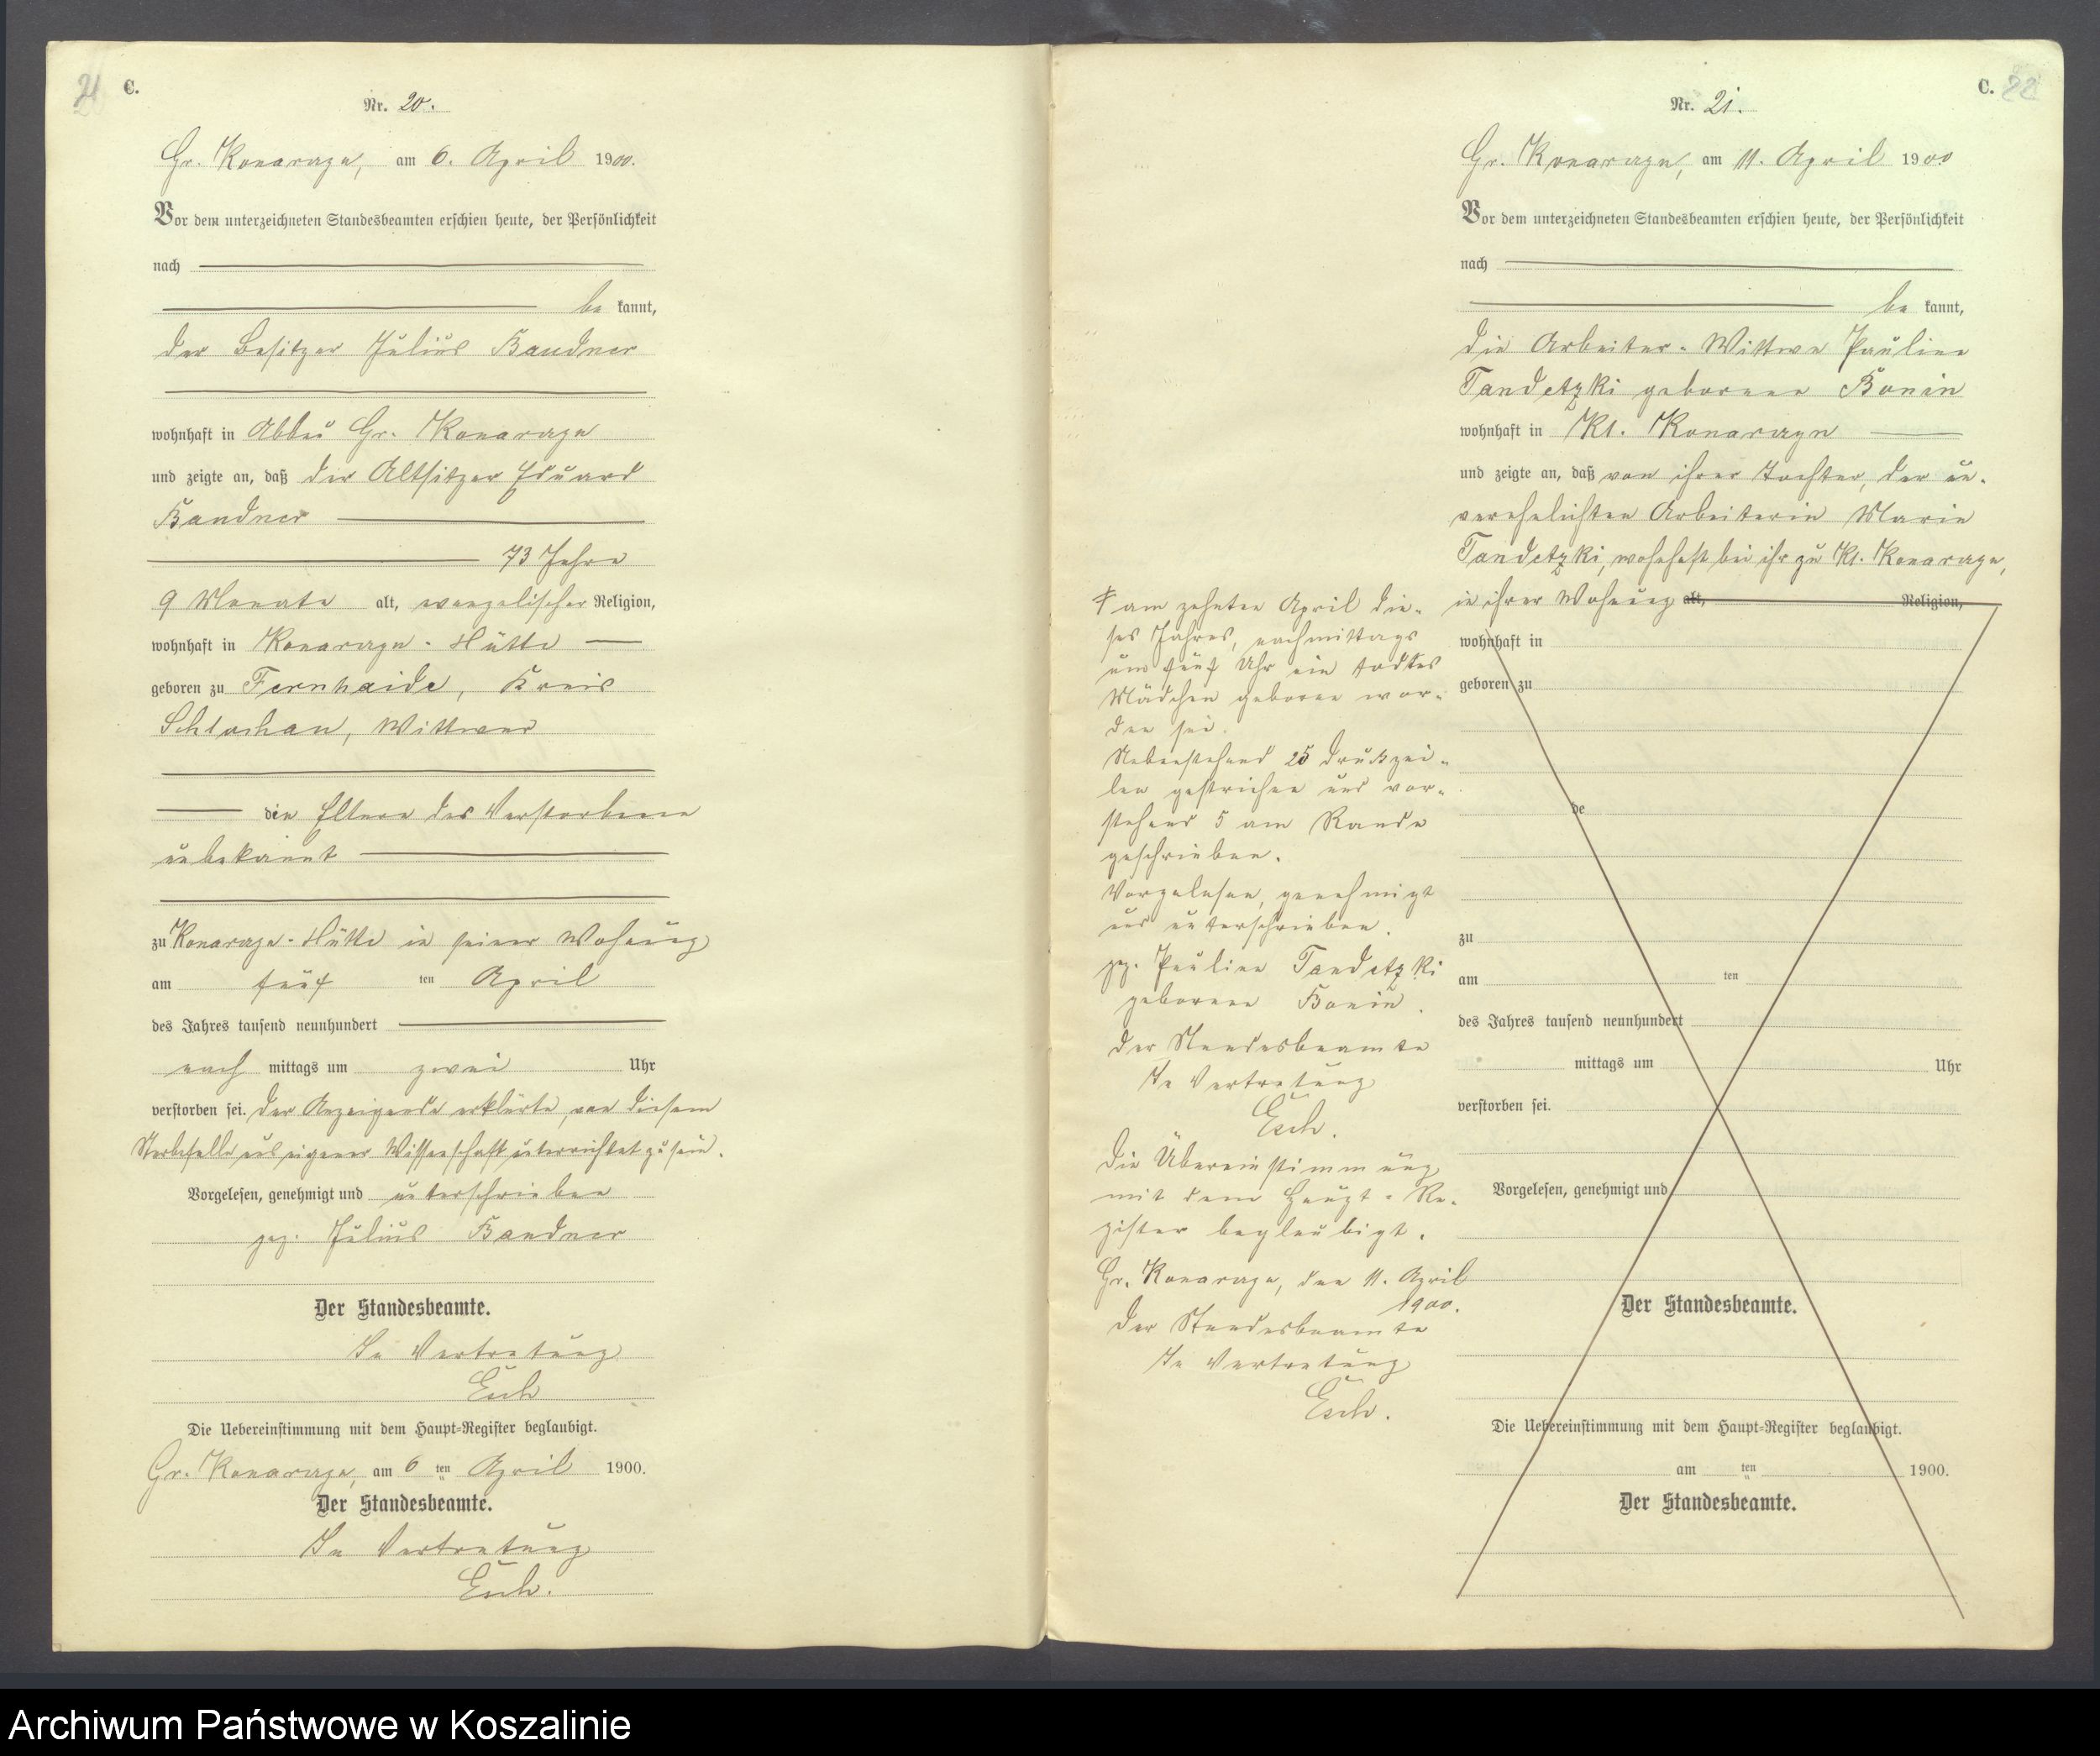 21
C.
Nr. 20.
Gr. Konarzyn, am 6. April 1900.
Vor dem unterzeichneten Standesbeamten erschien heute, der Persönlichkeit
nach
be kannt,
der Besitzer Julius Bandner
wohnhaft in Abbau Gr. Konarzyn
und zeigte an, daß der Altsitzer Eduard
Bandner
73 Jahre
9 Monate alt, evangelischer Religion,
wohnhaft in Konarzyn-Hütte
geboren zu Fernheide, Kreis
Schlochau, Wittwer
die Eltern des Verstorbenen
unbekannt
zu Konarzyn-Hütte in seiner Wohnung
am fünf ten April
des Jahres tausend neunhundert
nach mittags um zwei Uhr
verstorben sei. Der Anzeigende erklärte, von diesem
Sterbefalle aus eigener Wissenschaft unterrichtet zu sein.
Vorgelesen, genehmigt und unterschrieben
gez. Julius Bandner
Der Standesbeamte.
In Vertretung
Esch
Die Uebereinstimmung mit dem Haupt-Register beglaubigt.
Gr. Konarzyn, am 6 ten April 1900.
Der Standesbeamte.
In Vertretung
Esch.
C. 22
Nr. 21.
Gr. Konarzyn, am 11. April 1900
Vor dem unterzeichneten Standesbeamten erschien heute, der Persönlichkeit
nach
be kannt,
die Arbeiter-Wittwe Pauline
Tandetzki geborene Bonin
wohnhaft in Kl. Konarzyn
und zeigte an, daß von ihrer Tochter, der un-
verehelichten Arbeiterin Marie
Tandetzki, wohnhaft bei ihr zu Kl. Konarzyn,
in ihrer Wohnung alt, Religion,
wohnhaft in
geboren zu
de
zu
am ten
des Jahres tausend neunhundert
mittags um Uhr
verstorben sei.
Vorgelesen, genehmigt und
Der Standesbeamte.
Die Uebereinstimmung mit dem Haupt-Register beglaubigt.
am ten 1900.
Der Standesbeamte.
am zehnten April die-
ses Jahres, nachmittags
um fünf Uhr ein todtes
Mädchen geboren wor-
den sei.
Nebenstehend 25 Druckzei-
len gestrichen und vor-
stehend 5 am Rande
geschrieben.
Vorgelesen, genehmigt
und unterschrieben.
gez. Pauline Tandetzki
geborene Bonin.
Der Standesbeamte
In Vertretung
Esch.
Die Übereinstimmung
mit dem Haupt-Re-
gister beglaubigt.
Gr. Konarzyn, den 11. April
1900.
Der Standesbeamte
In Vertretung
Esch.
Archiwum Państwowe w Koszalinie